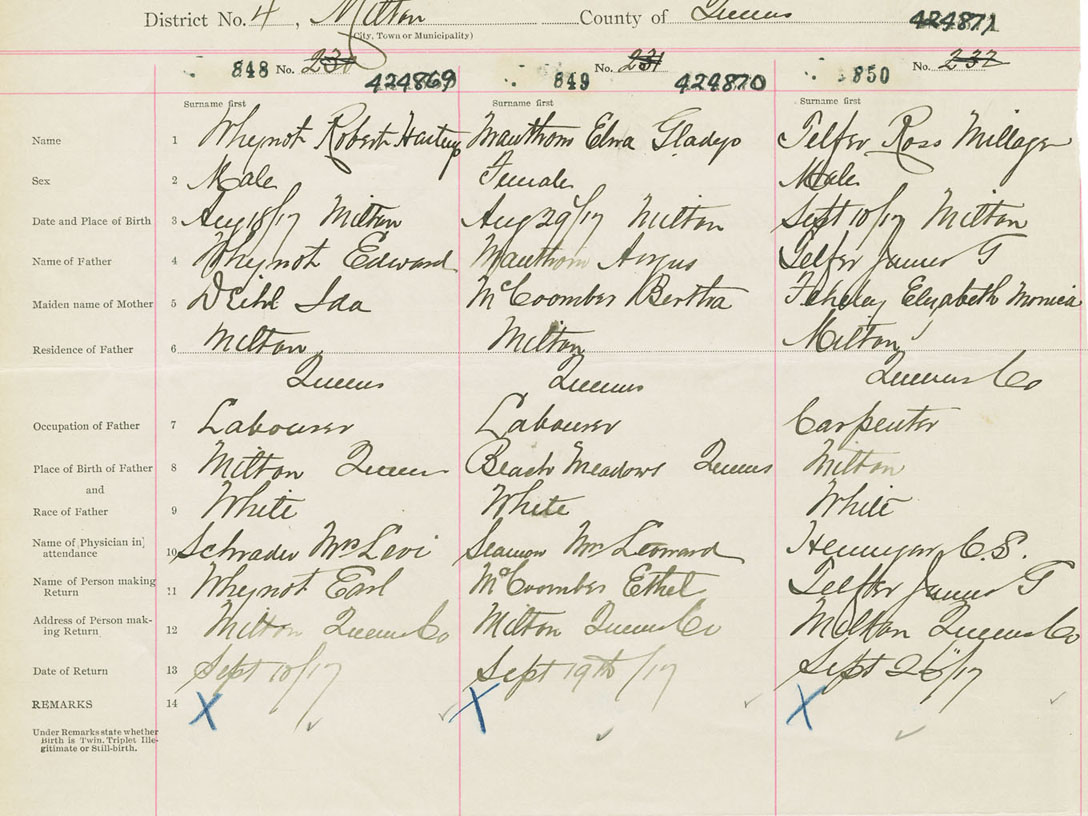 District No. 4, Milton County of Queens 424871
(City, Town or Municipality)
848 No. 424869 849 No. 231 424870 850 No. 237
Surname first Surname first Surname first
Name 1 Whynot Robert Elwa Gladys Telfer Ross Millage
Sex 2 Male Female Male
Date and Place of Birth 3 Aug 18/17 Milton Aug 29/17 Milton Sept 10/17 Milton
Name of Father 4 Whynot Edward Angus Telfer James G
Maiden name of Mother 5 Ida McCoomber Bertha Elizabeth Monica
Residence of Father 6 Milton Milton Milton
Queens Queens Queens Co
Occupation of Father 7 Labourer Labourer Carpenter
Place of Birth of Father 8 Milton Queens Beach Meadows Queens Milton
and
Race of Father 9 White White White
Name of Physician in attendance 10 Schrader Mrs Levi Seamon Mrs Leonard C. S.
Name of Person making Return 11 Whynot Earl McCoomber Ethel Telfer James G
Address of Person making Return 12 Milton Queens Co Milton Queens Co Milton Queens Co
Date of Return 13 Sept 18/17 Sept 19th/17 Sept 26/17
REMARKS 14 X X X
Under Remarks state whether
Birth is Twin, Triplet Ille-
gitimate or Still-birth.